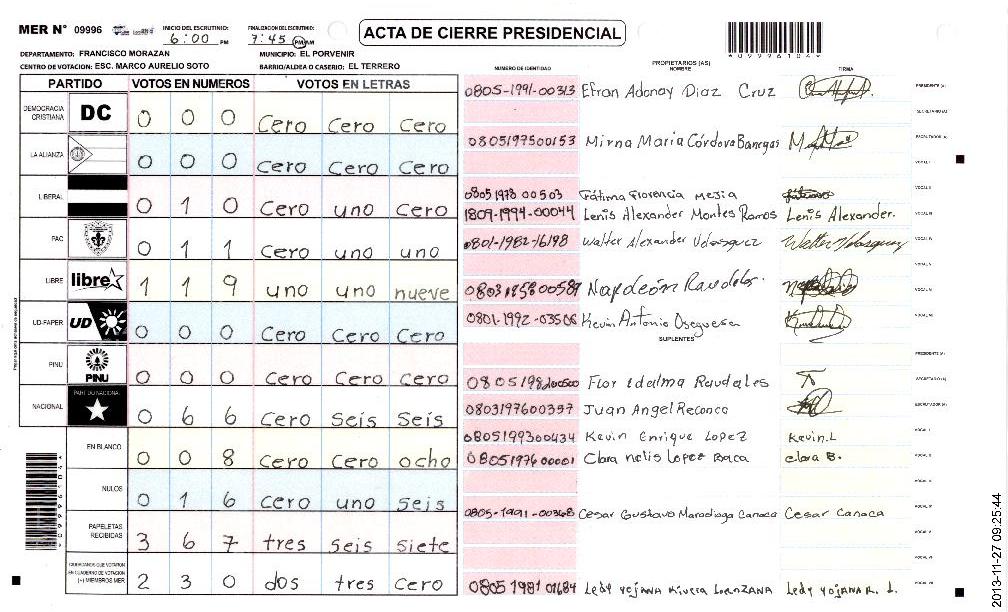 MER N° 09996
INICIO DEL ESCRUTINIO: 6:00 PM
FINALIZACION DEL ESCRUTINIO: 7:45 PM AM
ACTA DE CIERRE PRESIDENCIAL
*09996104*
DEPARTAMENTO: FRANCISCO MORAZAN
MUNICIPIO: EL PORVENIR
CENTRO DE VOTACION: ESC. MARCO AURELIO SOTO
BARRIO/ALDEA O CASERIO: EL TERRERO
PARTIDO VOTOS EN NUMEROS VOTOS EN LETRAS
DEMOCRACIA CRISTIANA DC 0 0 0 cero cero cero
LA ALIANZA 0 0 0 cero cero cero
LIBERAL 0 1 0 cero uno cero
PAC 0 1 1 cero uno uno
LIBRE libre 1 1 9 uno uno nueve
UD-FAPER UD 0 0 0 cero cero cero
PINU PINU 0 0 0 cero cero cero
NACIONAL PARTIDO NACIONAL 0 6 6 cero seis seis
EN BLANCO 0 0 8 cero cero ocho
NULOS 0 1 6 cero uno seis
PAPELETAS RECIBIDAS 3 6 7 tres seis siete
CIUDADANOS QUE VOTARON EN CUADERNO DE VOTACION (+) MIEMBROS MER 2 3 0 dos tres cero
NUMERO DE IDENTIDAD PROPIETARIOS (AS) NOMBRE FIRMA
0805-1991-00313 Efran Adonay Diaz Cruz PRESIDENTE (A)
SECRETARIO (A)
0805197500153 Mirna Maria Córdova Banegas ESCRUTADOR (A)
VOCAL I
0805 1978 00503 Fátima Florencia Mejia VOCAL II
1809-1994-00044 Lenis Alexander Montes Ramos Lenis Alexander. VOCAL III
0801-1982-16198 Walter Alexander Velasquez Walter Velasquez VOCAL IV
VOCAL V
Napoleón Raudales. VOCAL VI
0801-1992-03506 Kevin Antonio Oseguera VOCAL VII
SUPLENTES
PRESIDENTE (A)
Flor Idalma Raudales SECRETARIO (A)
0803197600397 Juan Angel Reconco ESCRUTADOR (A)
0805199300434 Kevin Enrique Lopez Kevin.L VOCAL I
0805197600001 Clara nelis Lopez Baca Clara B. VOCAL II
VOCAL III
0805-1991-00368 Cesar Gustavo Maradiaga Canaca Cesar Canaca VOCAL IV
VOCAL V
VOCAL VI
0805 1981 01684 Ledy yojana Rivera Lorenzana Ledy yojana R. L. VOCAL VII
2013-11-27 09:25:44